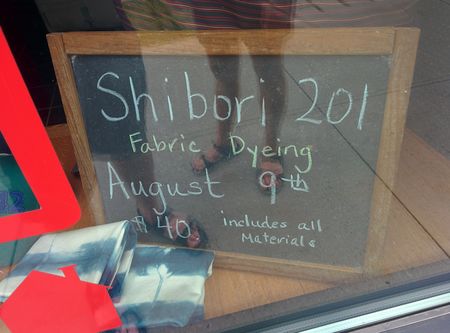 Shibori 201
Fabric Dyeing
August 9th
$40. includes all
Materials